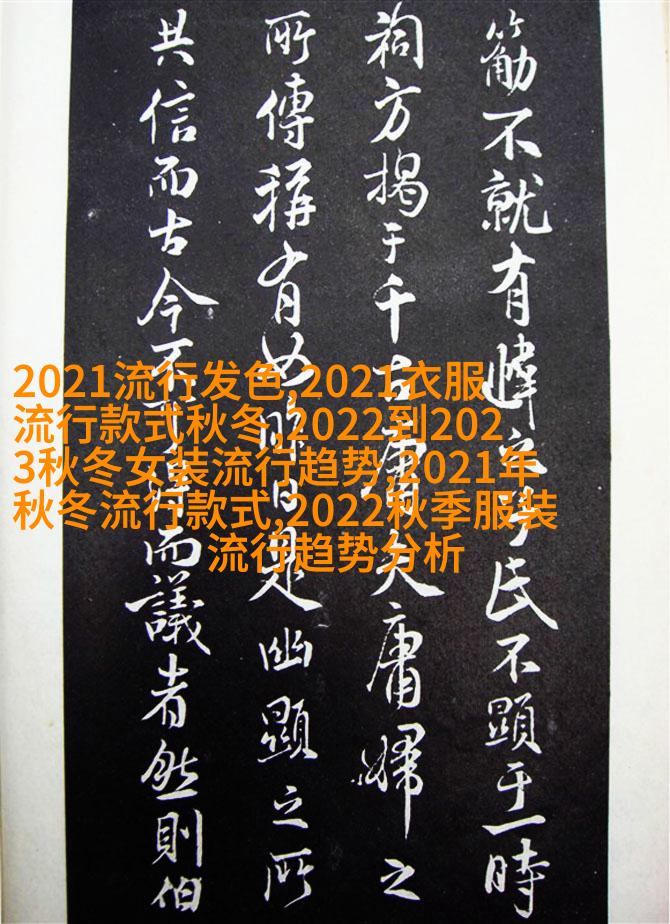 不就有之氏不顯于一時
祠方揭于千古庸夫庸婦之
所傳稱有如昨日是幽顯之所
共信而古今不可得而議者然則伯
2021流行发色,2021衣服
流行款式秋冬,2022到202
3秋冬女装流行趋势,2021年
秋冬流行款式,2022秋季服装
流行趋势分析